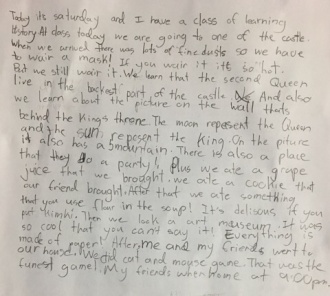 Today its saturday and I have a class of learning
History At class today we are going to one of the castle.
When we arrived There was lots of fine dusts so we have
to wair a mask! If you wair it its so hot.
But we still wair it. We learn that the second Queen
live in the backest part of the castle And also
we learn about the picture on the wall thats
behind the Kings throne. The moon repesent the Queen
and the sun repesent the King. On the piture
it also has a 5 mountain. There is also a place
that they do a party! Plus we ate a grape
juce that we brought. we ate a cookie that
our friend brought. After that we ate something
that you use flour in the soup! It's delicous if you
put kimhi. Then we look a art museum. It was
so cool that you can't say it! Everything is
made of paper! After, me and my friends went to
our house. We did cat and mouse game. That was the
funest game! My friends when home at 9:00pm.